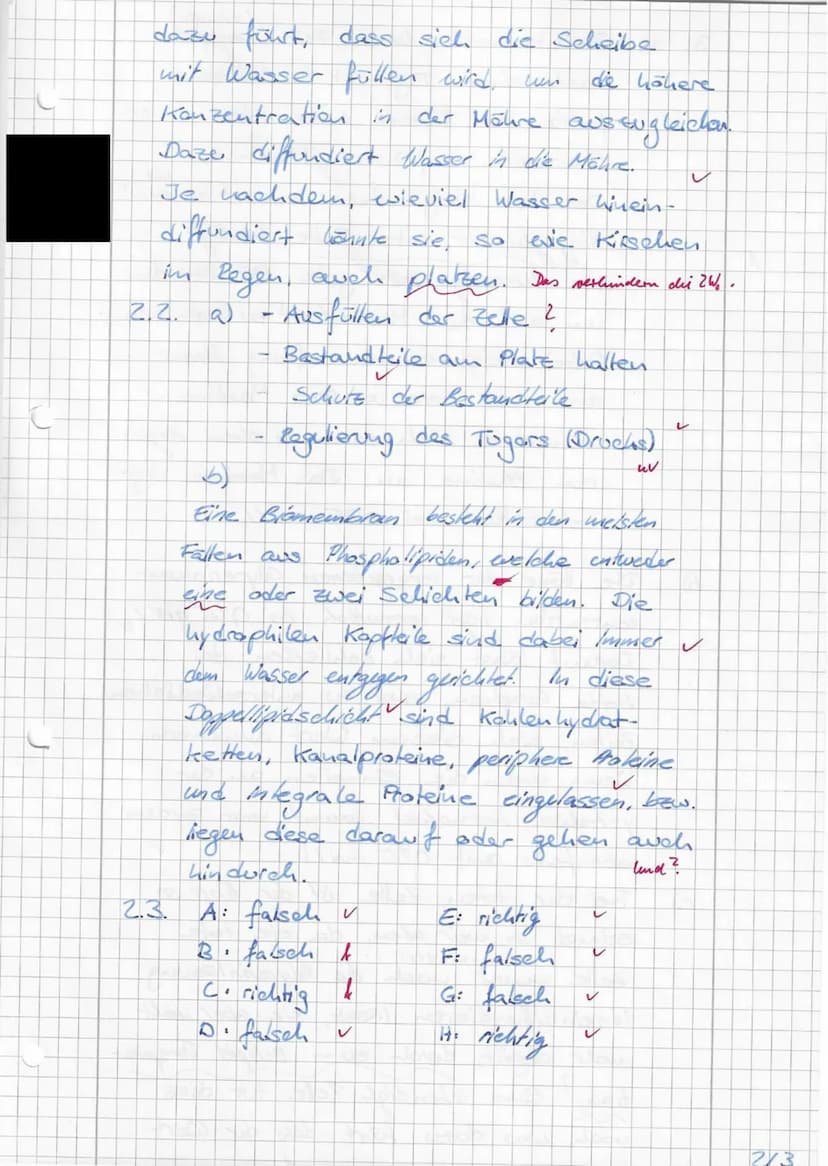 dazu führt, dass sich die Scheibe
mit Wasser füllen wird, um die höhere
Konzentration in der Möhre auszugleichen.
Dazu diffundiert Wasser in die Möhre.
Je nachdem, wieviel Wasser hinein-
diffundiert könnte sie, so wie Kirschen
im Regen, auch platzen. Das verhindern die ZW.
2.2. a) - Ausfüllen der Zelle ?
- Bestandteile am Platz halten
- Schutz der Bestandteile
- Regulierung des Tugors (Drucks)
b)
Eine Biomembran besteht in den meisten
Fällen aus Phospholipiden, welche entweder
eine oder zwei Schichten bilden. Die
hydrophilen Kopfteile sind dabei immer
dem Wasser entgegen gerichtet. In diese
Doppellipidschicht sind Kohlenhydrat-
ketten, Kanalproteine, periphere Proteine
und integrale Proteine eingelassen, bzw.
liegen diese darauf oder gehen auch
hindurch. Und?
2.3. A: falsch ✓ E: richtig ✓
B: falsch F: falsch ✓
C: richtig G: falsch ✓
D: falsch ✓ H: richtig ✓
2/3